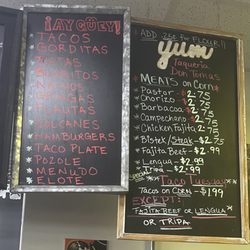 ¡AY GÜEY!
TACOS
GORDITAS
TORTAS
BURRITOS
NACHOS
FLAUTAS
VOLCANES
HAMBURGERS
TACO PLATE
POZOLE
MENUDO
ELOTE
ADD .25¢ For FLOUR!!
yum
Taqueria
Don Tomas
MEATS on Corn
Pastor - 2.75
Chorizo - 2.75
Barbacoa 2.75
Campechana 2.75
Chicken Fajita 2.75
Bistek/Steak - $2.75
Fajita Beef - $2.99
Lengua - $2.99
Tripa - $2.99
Taco Tuesday
Tacos on CORN - $1.99
EXCEPT:
FAJITA BEEF OR LENGUA
OR TRIPA